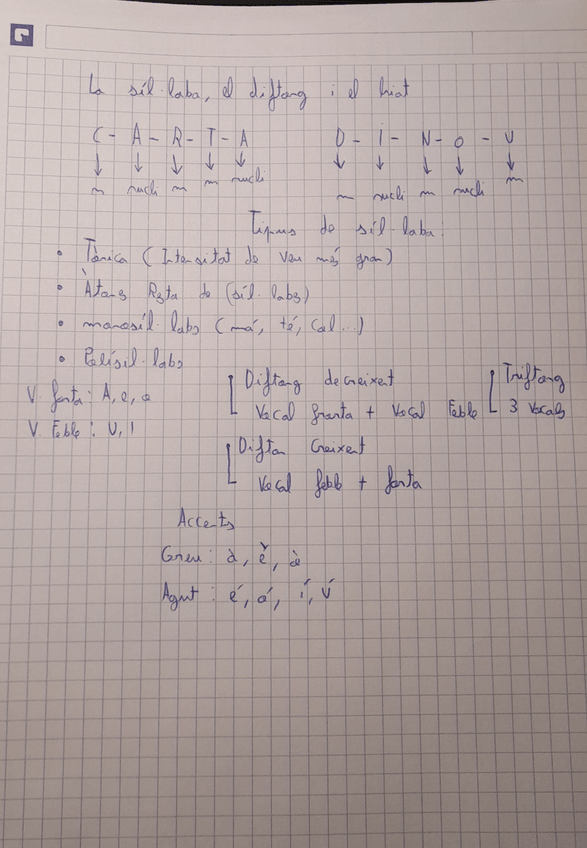 La síl·laba, el diftong i el hiat
C - A - R - T - A D - I - N - O - U
↓ ↓ ↓ ↓ ↓ ↓ ↓ ↓ ↓ ↓
m nucli m m nucli m nucli m nucli m
Tipus de síl·laba:
• Tònica (Intensitat de veu més gran)
• Àtons Resta de (síl·labs)
• monosíl·labs (má, té, Cal...)
• Polísil·labs
V. forta: A, e, o
V. Feble: U, I
Diftong decreixent
Vocal fronta + Vocal Feble
Triftong
3 Vocals
Difton Creixent
Vocal feble + forta
Accents
Greu: à, è, ò
Agut: é, ó, í, ú